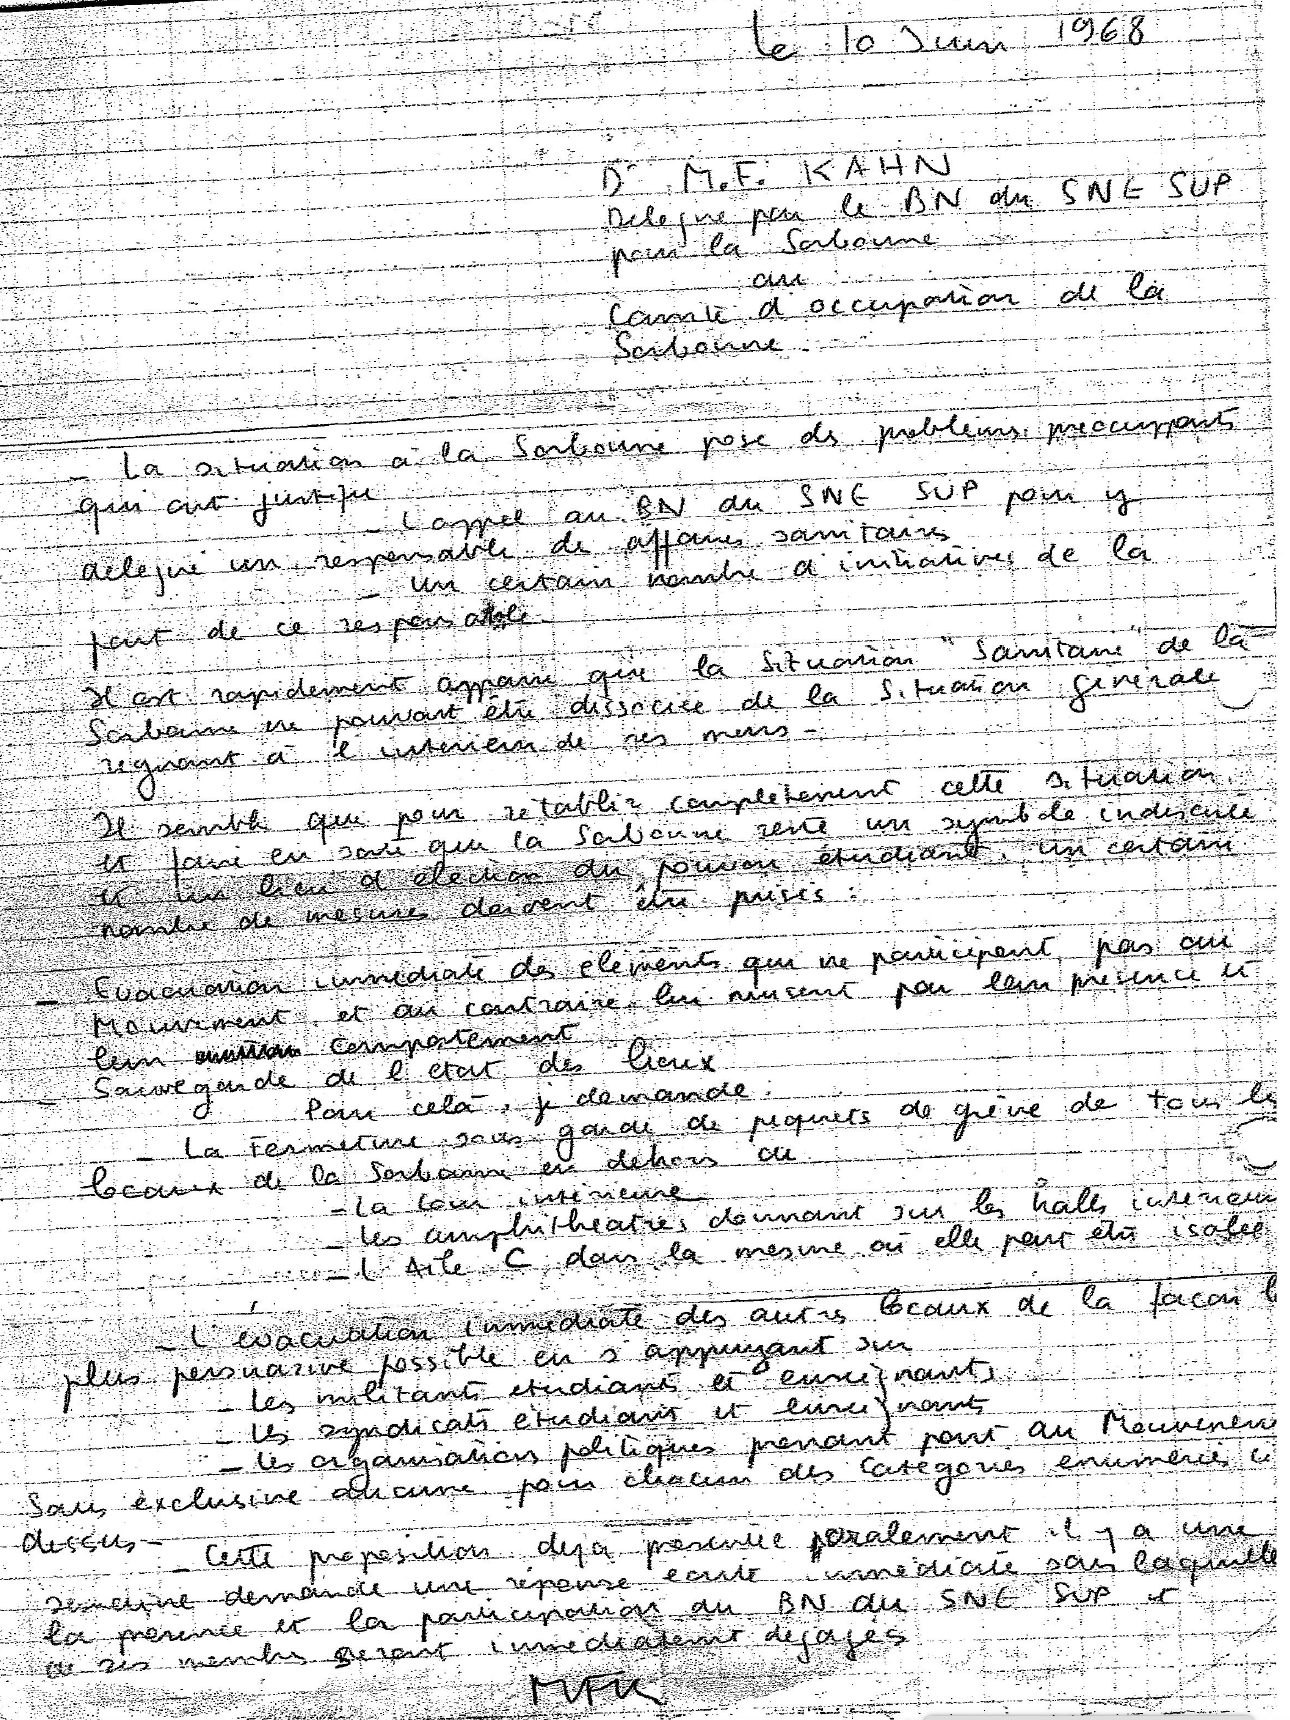 le 10 Juin 1968
Dr M.F. KAHN
Delegue par le BN du SNE SUP
pour la Sorbonne
au
Comité d'occupation de la
Sorbonne
- La situation à la Sorbonne pose des problèmes préoccupants
qui ont justifié
- l'appel au BN du SNE SUP pour y
délégué un responsable de affaires sanitaires
- un certain nombre d'initiatives de la
part de ce responsable.
Il est rapidement apparu que la situation "Sanitaire" de la
Sorbonne ne pouvait être dissociée de la situation générale
régnant à l'intérieur de ses murs -
Il semble que pour rétablir complètement cette situation
et faire en sorte que la Sorbonne reste un symbole indiscuté
et un lieu d'élection du pouvoir étudiant, un certain
nombre de mesures doivent être prises :
- Evacuation immédiate des éléments qui ne participent pas au
Mouvement et au contraire lui nuisent par leur présence et
leur comportement
- Sauvegarde de l'état des lieux
Pour celà, je demande :
- La Fermeture sous garde de piquets de grève de tous les
locaux de la Sorbonne en dehors de
- La cour intérieure
- Les amphithéatres donnant sur les halls intérieurs
- L'Aile C dans la mesure où elle peut être isolée
- L'évacuation immédiate des autres locaux de la façon la
plus persuasive possible en s'appuyant sur
- Les militants étudiants et enseignants
- Les syndicats étudiants et enseignants
- Les organisations politiques prenant part au Mouvement
Sans exclusive aucune pour chacun des catégories énumérées ci
dessus -
- Cette proposition déjà présentée oralement il y a une
semaine demande une réponse écrite immédiate sans laquelle
la présence et la participation du BN du SNE SUP et
de ses membres seront immédiatement dégagés
MFK